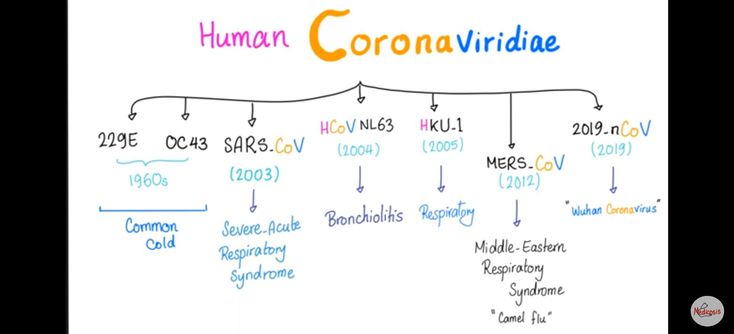 Human CoronaViridiae
229E
OC43
1960s
Common
Cold
SARS_CoV
(2003)
Severe_Acute
Respiratory
Syndrome
HCoV NL63
(2004)
Bronchiolitis
HKU_1
(2005)
Respiratory
MERS_CoV
(2012)
Middle-Eastern
Respiratory
Syndrome
"Camel flu"
2019_nCoV
(2019)
"Wuhan Coronavirus"
Medicosis